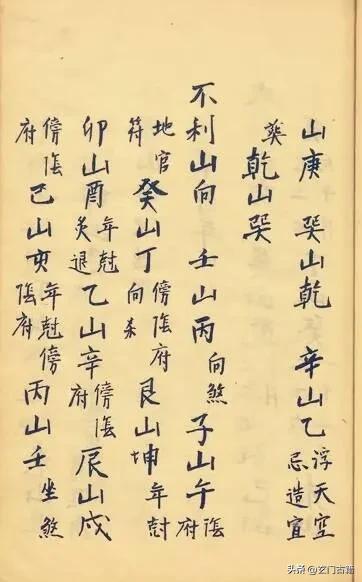 山庚 巽山乾 辛山乙 浮天空忌造宜
葬 乾山巽
不利山向 壬山丙 向煞 子山午 陰府
地官符 癸山丁 傍陰府向杀 艮山坤 年尅
卯山酉 年尅灸退 乙山辛 傍陰府 辰山戌
傍陰府 巳山亥 年尅傍陰府 丙山壬 坐煞
头条 @玄门古籍